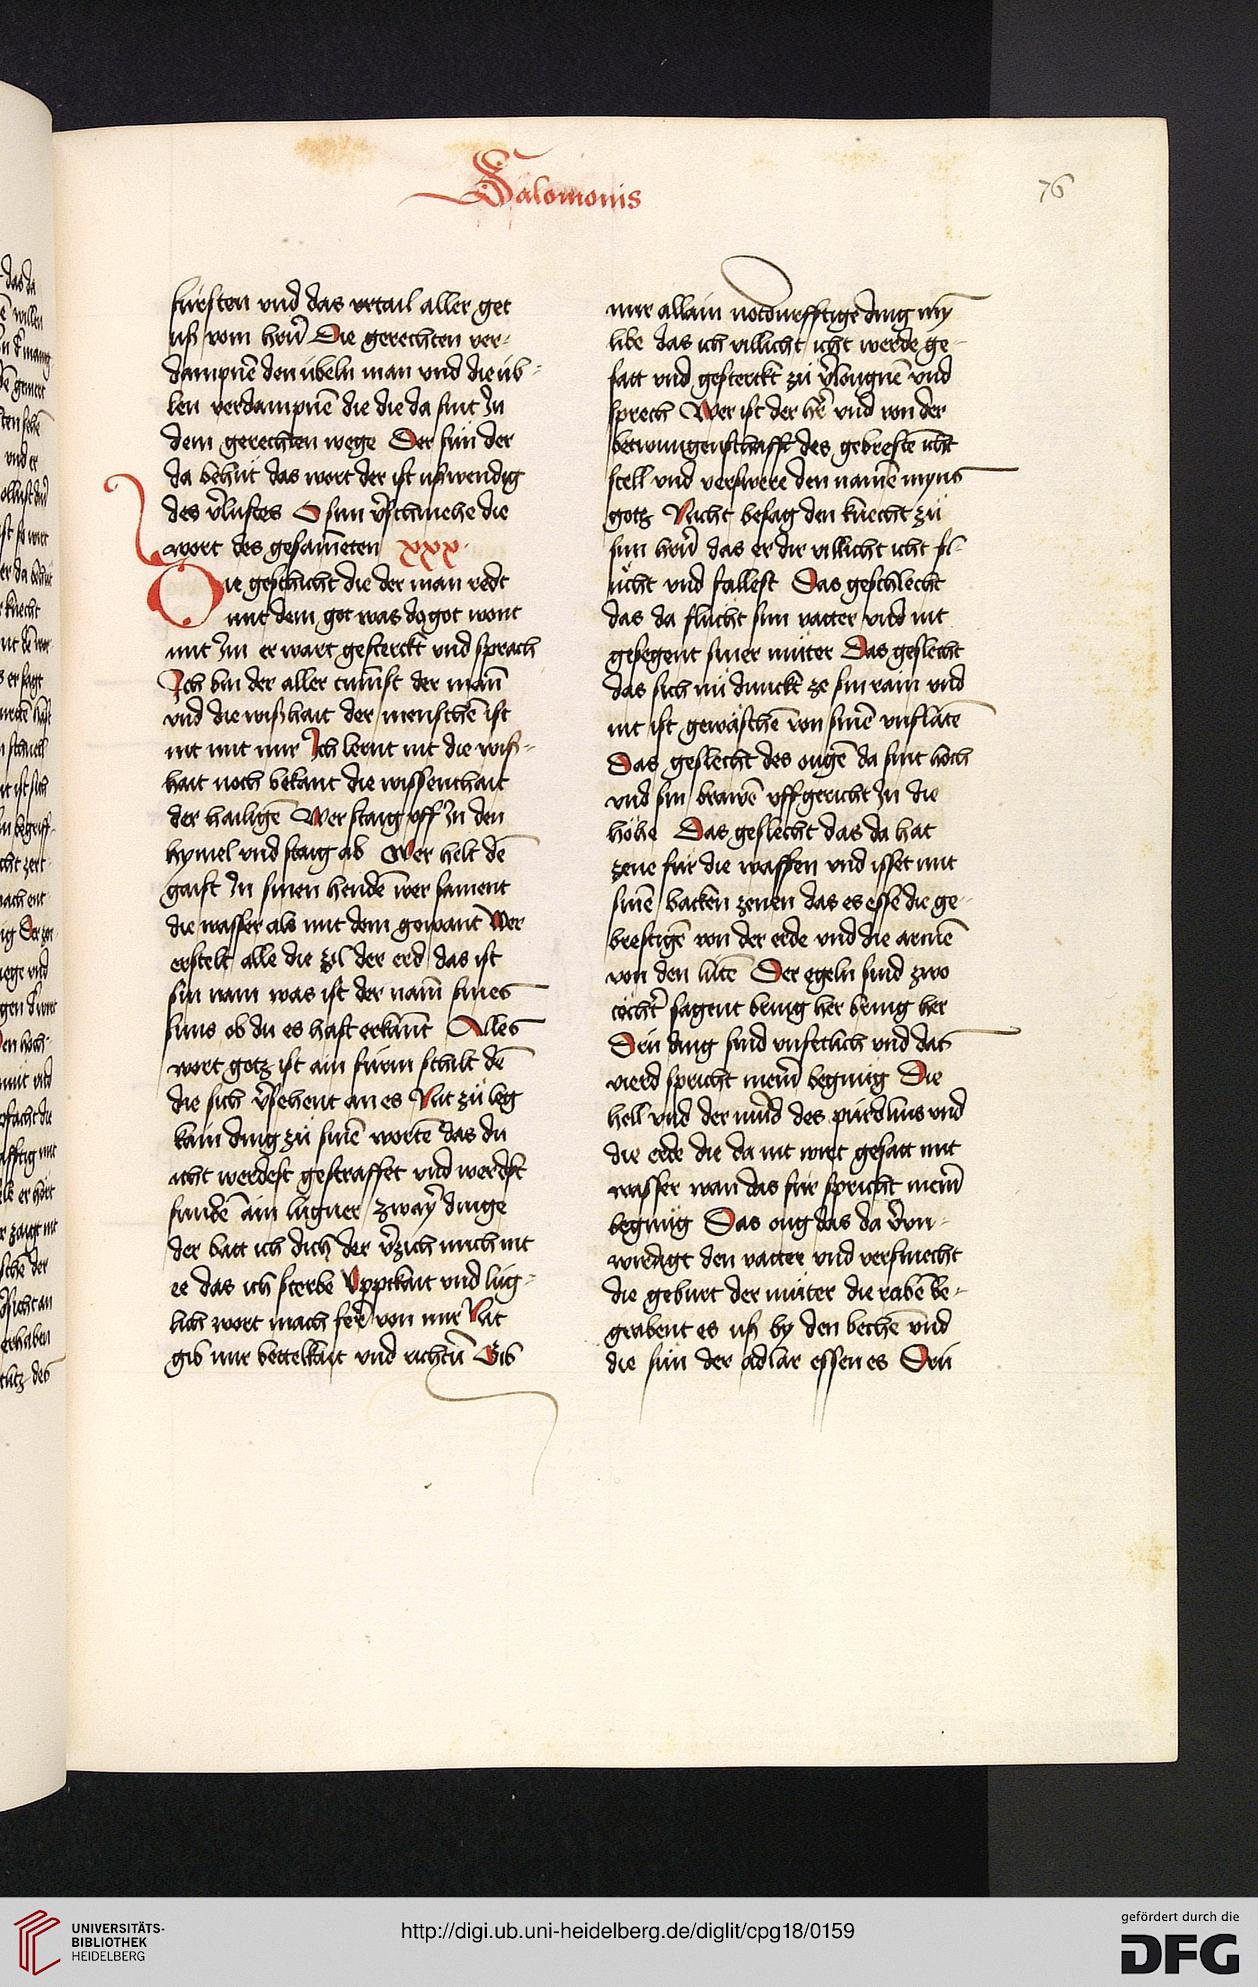 Salomonis
76
fürsten vnd das vrtail aller get
uß vom herñ Die gerechten ver-
dampnẽ den übeln man vnd die üb-
len verdampnẽ die die da sint Jn
dem gerechten wege Der sün der
da behüt das wort der ist ußwendig
des v̉lustes O sun v̉schmehe die
wort des gesam̃eten xxx.
Die geschicht die der man redt
mit dem got was do got wont
mit Jm er wart gesterckt vnd sprach
Jch bin der aller tum̃st der mañ
vnd die wißhait der menschẽ ist
nit mit mir Jch lernt nit die wiß-
hait noch bekant die wissenthait
der hailigẽ Wer staig vff Jn den
hymel vnd staig ab Wer helt dẽ
gaist Jn sinen hendẽ wer sament
die wasser als mit dem gewant Wer
erstelt alle die zil der erd das ist
sin nam was ist der nam̃ sines
suns ob du es hast erkañt Alles
wort gotz ist ain fürin schilt dẽ
die sich v̉sehent an es Nit zü leg
kain ding zü sinẽ wortẽ das du
icht werdest gestraffet vnd werdst
fundẽ ain lugner zwaÿ dinge
der batt ich dich der v̉zich mich nit
ee das ich sterbe Vppikait vnd lug-
lich wort mach ferr̃ von mir Nit
gib mir bettelkait vnd richtũ Gib
mir allain notdurfftige ding mÿ
libe das ich villicht icht werde ge-
satt vnd gesterckt zü v̉lougnẽ vnd
sprech Wer ist der her̃ vnd von der
betwungenschafft des gebrestẽ icht
stell vnd verswere den namẽ myns
gotz Nicht besag den knecht zü
sim herñ das er dir villicht icht fl-
ücht vnd fallest Das geschlecht
das da flücht sim vatter vnd nit
gesegent siner müter Das geslecht
das sich nü dunckt ze sin rain vnd
nit ist gewäschẽ von sinẽ vnflatẽ
Das geslecht des ougẽ da sint hoch
vnd sin brawẽ vffgericht Jn die
höhe Das geslecht das da hat
zene für die waffen vnd isset mit
sinẽ backen zenen das es essẽ die ge-
brestigẽ von der erde vnd die armẽ
von den lütẽ Der egeln sind zwo
töcht̉ sagent bring her bring her
Drü ding sind vnsetlich vnd das
vierd spricht niem̃ begnüg Die
hell vnd der mũd des pürdlins vnd
die erde die da nit wirt gesatt mit
wasser wan das für spricht niem̃
begnüg Das oug das da v̉on-
wirdigt den vatter vnd versmecht
die geburt der müter die rabẽ be-
grabent es uß by den bechẽ vnd
die sün der adlar essen es Drü
UNIVERSITÄTS-
BIBLIOTHEK
HEIDELBERG
http://digi.ub.uni-heidelberg.de/diglit/cpg18/0159
gefördert durch die
DFG